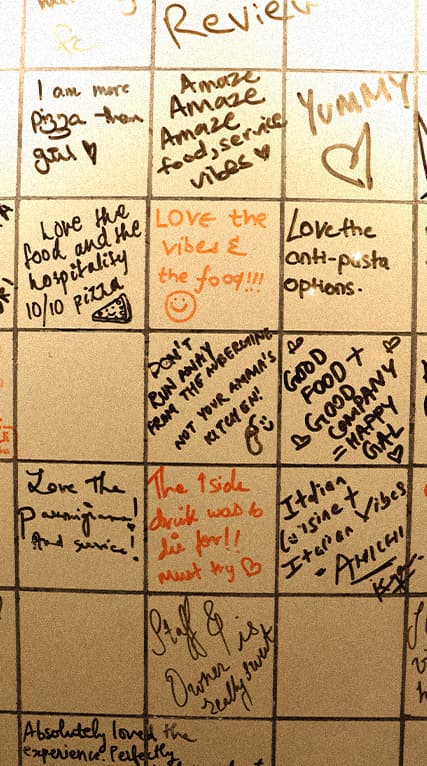 Review
I am more
pizza than
girl
Amaze
Amaze
Amaze
food, service
vibes
YUMMY
Love the
food and the
hospitality
10/10 Pizza
LOVE the
vibes &
the food!!!
Love the
anti-pasta
options.
DON'T
RUN AWAY
FROM THE
NOT YOUR AMMA'S
KITCHEN!
GOOD
FOOD +
GOOD
COMPANY
= HAPPY
GAL
Love The
And service!
The 1 side
drink was to
die for!!
Must try
Italian
Cuisine +
Italian Vibes
= AMICHI
Staff &
Owner is
really sweet
Absolutely loved the
experience. Perfectly